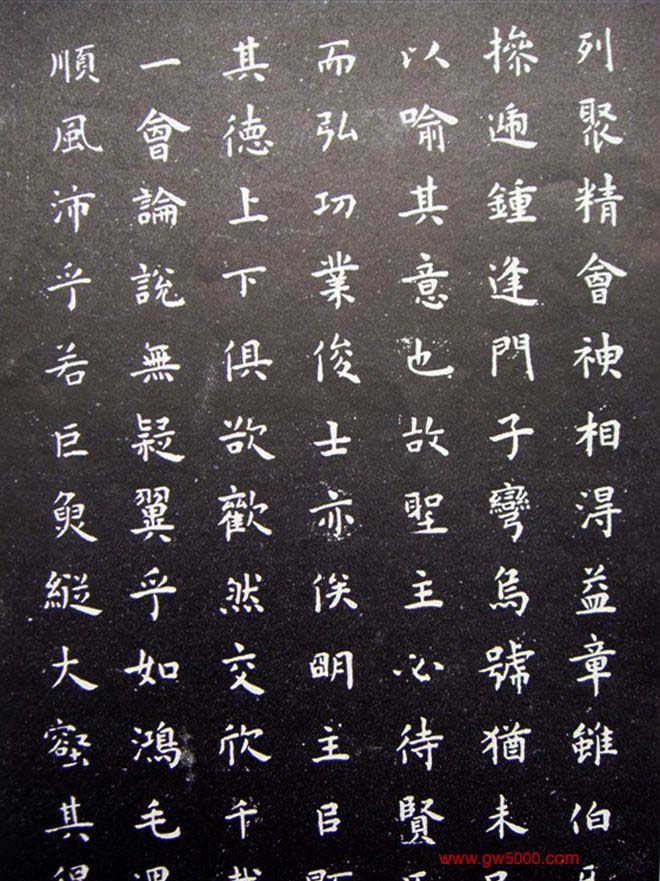 列聚精會神相得益章雖伯
操遞鍾逢門子彎烏號猶未
以喻其意也故聖主必待賢
而弘功業俊士亦俟明主㠯
其德上下俱欲歡然交欣千
一會論說無疑翼乎如鴻毛
順風沛乎若巨魚縱大壑其
www.gw5000.com